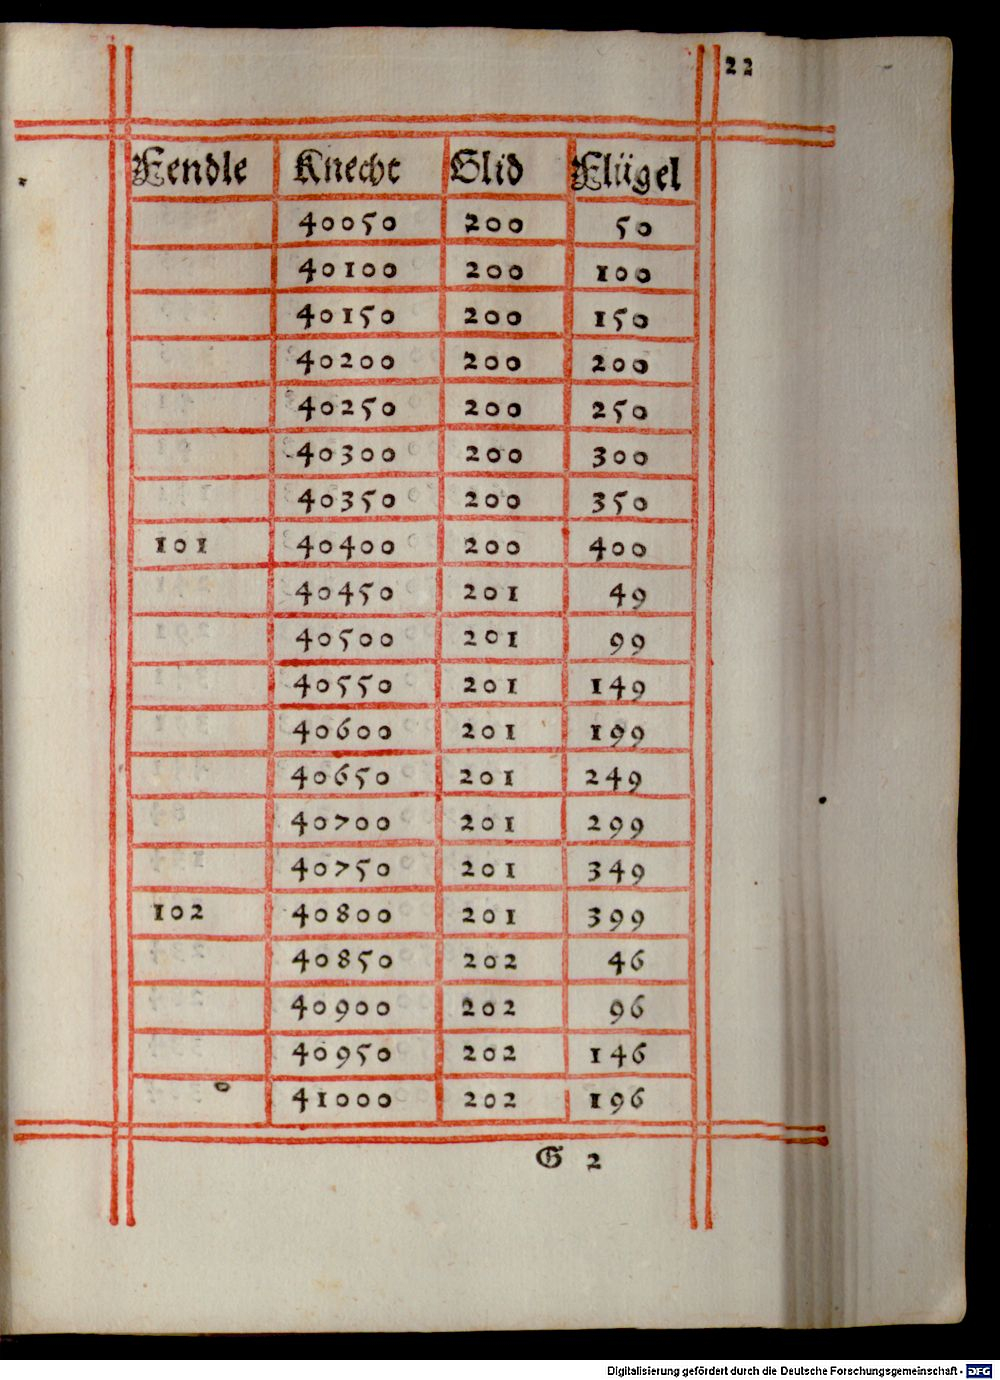 22
Fendle Knecht Glid Flügel
40050 200 50
40100 200 100
40150 200 150
40200 200 200
40250 200 250
40300 200 300
40350 200 350
101 40400 200 400
40450 201 49
40500 201 99
40550 201 149
40600 201 199
40650 201 249
40700 201 299
40750 201 349
102 40800 201 399
40850 202 46
40900 202 96
40950 202 146
41000 202 196
G 2
Digitalisierung gefördert durch die Deutsche Forschungsgemeinschaft - DFG